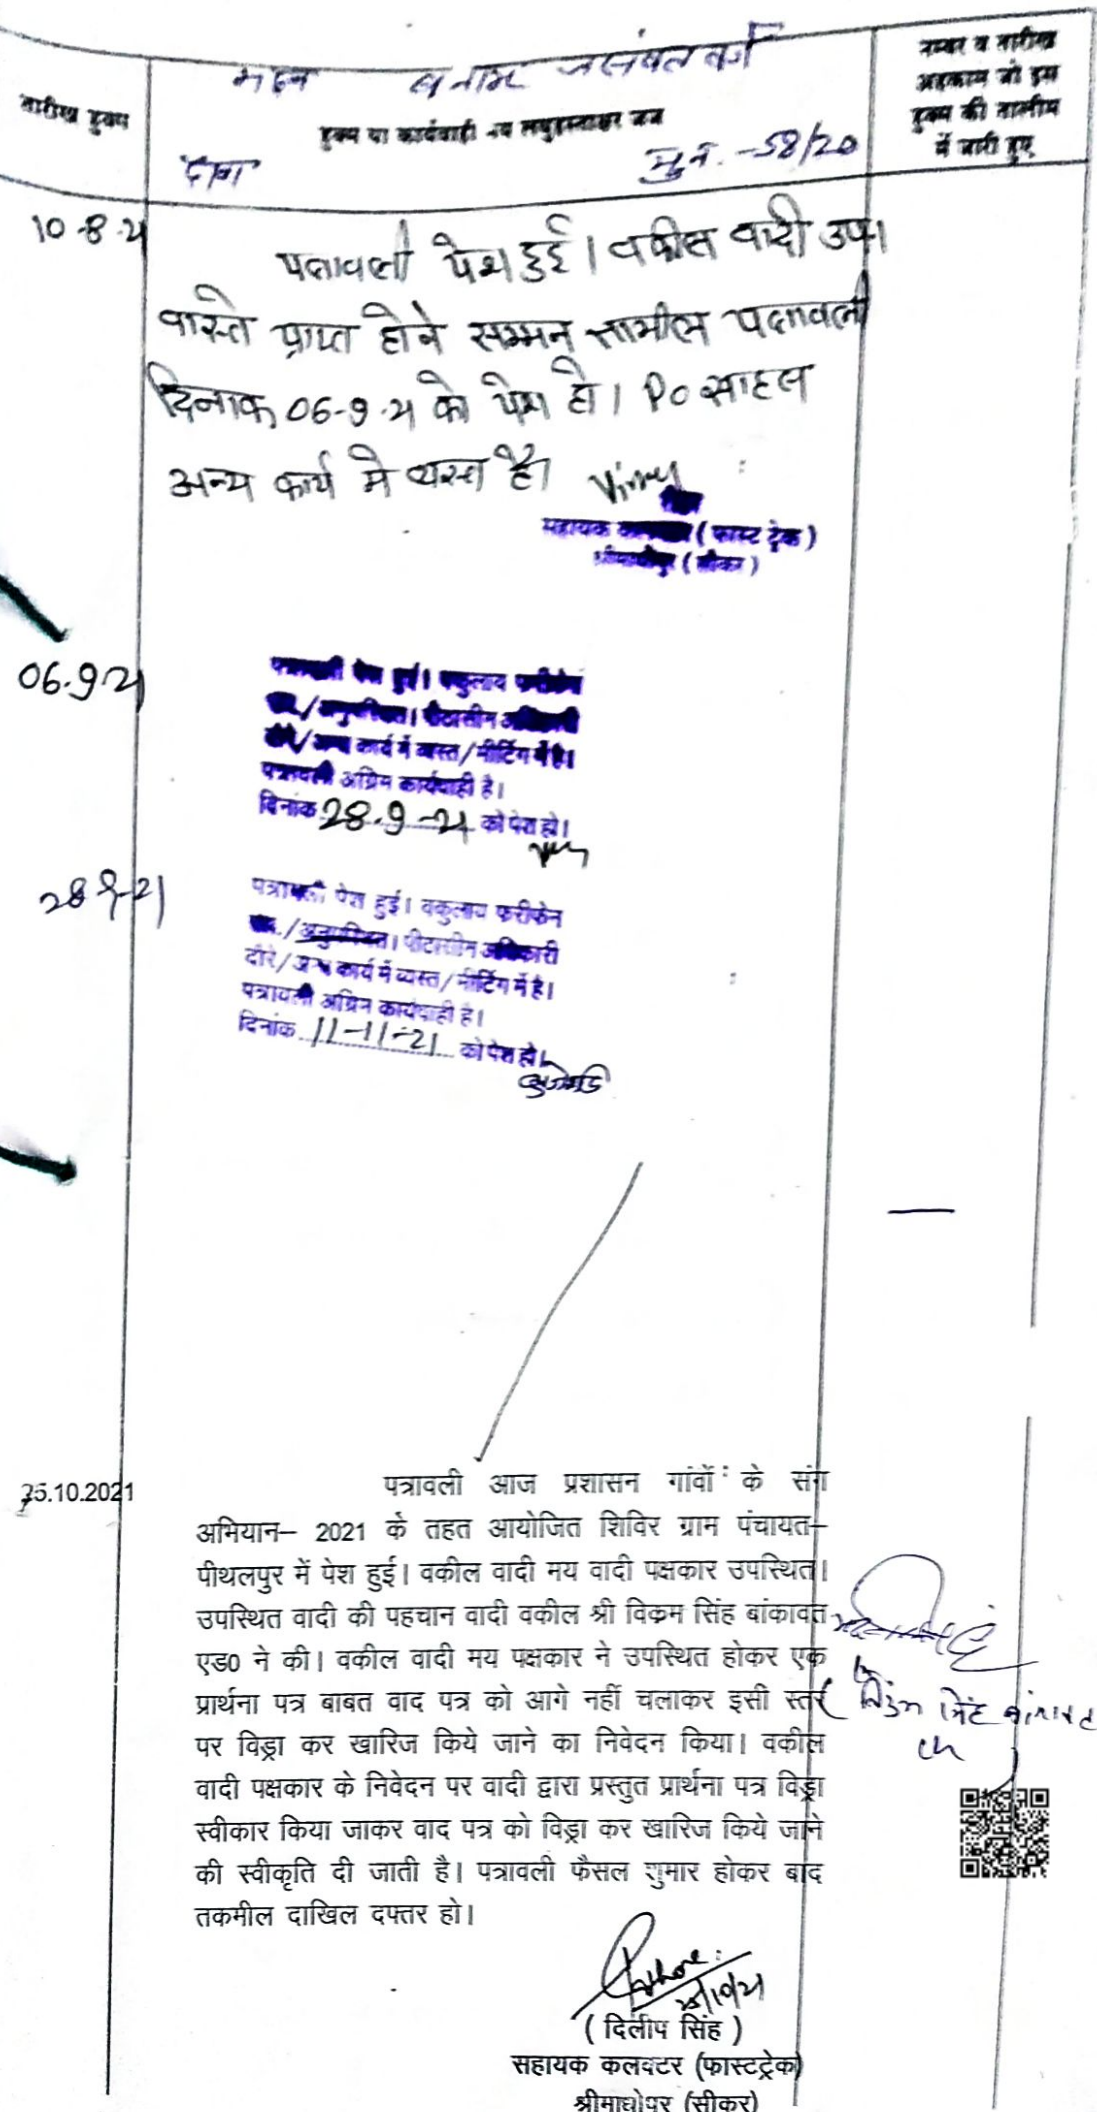 तारीख हुक्म
मदन बनाम जसवंत वर्गे
हुक्म या कार्यवाही मय लघुहस्ताक्षर जज
दावा मु.न. -58/20
नम्बर व तारीख
अहकाम जो इस
हुक्म की तामील
में जारी हुए
10-8-21
पत्रावली पेश हुई। वकील वादी उप।
वास्ते प्राप्त होने सम्मन तामील पत्रावली
दिनाक 06-9-21 को पेश हो। PO साहब
अन्य कार्य मे व्यस्त है।
सहायक कलक्टर (फास्ट ट्रेक)
श्रीमाधोपुर (सीकर)
06.9.21
पत्रावली पेश हुई। वकुलाय फरीकेन
उप./अनुपस्थित। पीठासीन अधिकारी
दौरे/अन्य कार्य में व्यस्त/मीटिंग में है।
पत्रावली अग्रिम कार्यवाही है।
दिनांक 28.9-21 को पेश हो।
28-9-21
पत्रावली पेश हुई। वकुलाय फरीकेन
उप./अनुपस्थित। पीठासीन अधिकारी
दौरे/अन्य कार्य में व्यस्त/मीटिंग में है।
पत्रावली अग्रिम कार्यवाही है।
दिनांक 11-11-21 को पेश हो।
25.10.2021
पत्रावली आज प्रशासन गांवों के संग
अभियान– 2021 के तहत आयोजित शिविर ग्राम पंचायत–
पीथलपुर में पेश हुई। वकील वादी मय वादी पक्षकार उपस्थित।
उपस्थित वादी की पहचान वादी वकील श्री विक्रम सिंह बांकावत
एड0 ने की। वकील वादी मय पक्षकार ने उपस्थित होकर एक
प्रार्थना पत्र बाबत वाद पत्र को आगे नहीं चलाकर इसी स्तर
पर विड्रा कर खारिज किये जाने का निवेदन किया। वकील
वादी पक्षकार के निवेदन पर वादी द्वारा प्रस्तुत प्रार्थना पत्र विड्रा
स्वीकार किया जाकर वाद पत्र को विड्रा कर खारिज किये जाने
की स्वीकृति दी जाती है। पत्रावली फैसल शुमार होकर बाद
तकमील दाखिल दफ्तर हो।
25/10/21
( दिलीप सिंह )
सहायक कलक्टर (फास्टट्रेक)
श्रीमाधोपुर (सीकर)